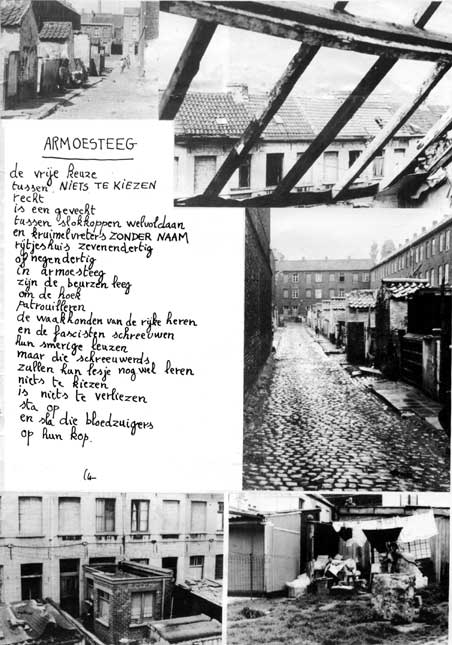 ARMOESTEEG
de vrije keuze
tussen NIETS TE KIEZEN
recht
is een gevecht
tussen slokkoppen welvoldaan
en kruimelvreters ZONDER NAAM
rijtjeshuis zevenendertig
of negendertig
in armoesteeg
zijn de beurzen leeg
om de hoek
patrouilleren
de waakhonden van de rijke heren
en de fascisten schreeuwen
hun smerige leuzen
maar die schreeuwerds
zullen hun lesje nog wel leren
niets te kiezen
is niets te verliezen
sta op
en sla die bloedzuigers
op hun kop.